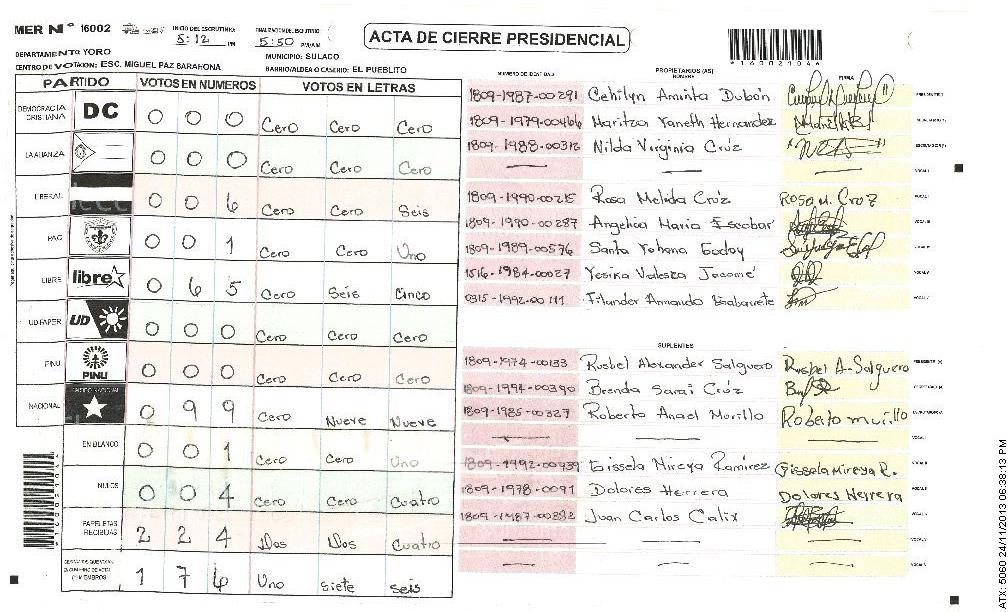 MER Nº 16002
INICIO DEL ESCRUTINIO: 5:12 PM
FINALIZACION DEL ESCRUTINIO 5:50 PM/A/M
ACTA DE CIERRE PRESIDENCIAL
DEPARTAMENTO: YORO
MUNICIPIO: SULACO
CENTRO DE VOTACION: ESC. MIGUEL PAZ BARAHONA
BARRIO/ALDEA O CASERIO: EL PUEBLITO
PARTIDO VOTOS EN NUMEROS VOTOS EN LETRAS
DEMOCRACIA CRISTIANA DC 0 0 0 Cero Cero Cero
LA ALIANZA 0 0 0 Cero Cero Cero
LIBERAL 0 0 6 Cero Cero Seis
PAC 0 0 1 Cero Cero Uno
LIBRE libre 0 6 5 Cero Seis Cinco
UD FAPER UD 0 0 0 Cero Cero Cero
PINU PINU 0 0 0 Cero Cero Cero
NACIONAL 0 9 9 Cero Nueve Nueve
EN BLANCO 0 0 1 Cero Cero Uno
NULOS 0 0 4 Cero Cero Cuatro
PAPELETAS RECIBIDAS 2 2 4 Dos Dos Cuatro
1 7 6 Uno Siete Seis
NUMERO DE IDENTIDAD PROPIETARIOS (AS) NOMBRE FIRMA
1809-1987-00291 Cehilyn Aminta Dubón
1809-1979-00466 Maritza Yaneth Hernandez
1809-1988-00312 Nilda Virginia Crúz
1809-1990-00215 Rosa Melida Crúz Rosa M. Cruz
1809-1990-00287 Angelica Maria Escobar
1809-1989-00576 Santa Yohana Godoy
1516-1984-00027 Yesika Valeska Jacomé
0315-1992-00111 Armando
SUPLENTES
1809-1974-00133 Rusbel Alexander Salguero Rusbel A-Salguero
1809-1994-00390 Brenda Sarai Crúz
1809-1985-00327 Roberto Anael Murillo Roberto murillo
1809-1992-00939 Gissela Mireya Ramírez Gissela Mireya R.
1809-1978-0091 Dolores Herrera Dolores Herrera
1809-1987-00392 Juan Carlos Calix
ATX: 5060 24/11/2013 06:38:13 PM